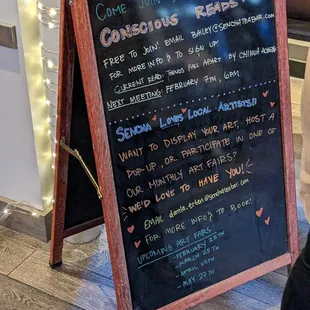 COME JOIN
CONSCIOUS READS
FREE TO JOIN! EMAIL BAILEY@SENCHATEABAR.COM
FOR MORE INFO & TO SIGN UP!
CURRENT READ: THINGS FALL APART BY CHINUA ACHEBE
NEXT MEETING: FEBRUARY 7TH, 6PM
SENCHA LOVES LOCAL ARTISTS!!
WANT TO DISPLAY YOUR ART, HOST A
POP-UP, OR PARTICIPATE IN ONE OF
OUR MONTHLY ART FAIRS?
WE'D LOVE TO HAVE YOU!
EMAIL @senchateabar.com
FOR MORE INFO & TO BOOK!
UPCOMING ART FAIRS:
- FEBRUARY 25TH
- MARCH 25TH
- APRIL
- MAY 27TH